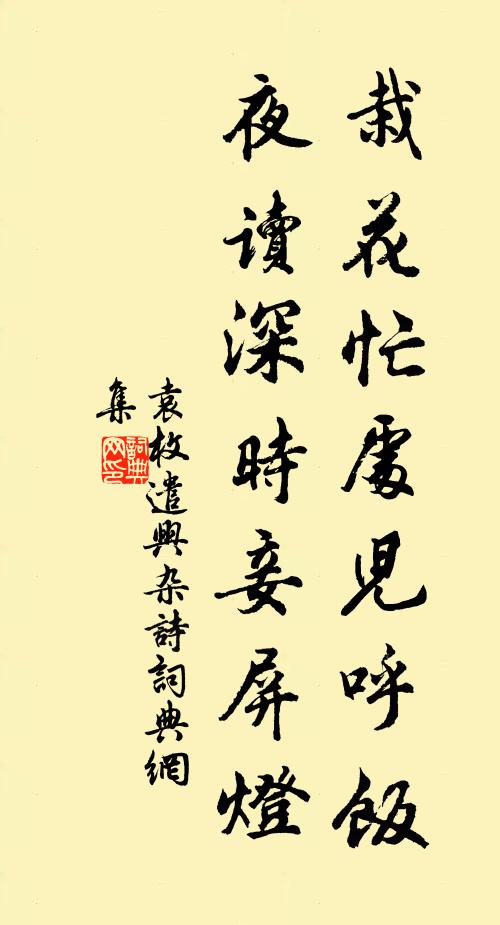 栽花忙處兒呼飯
夜读深時妾屏燈
袁枚遣興杂詩詞典網
集
詞典网印